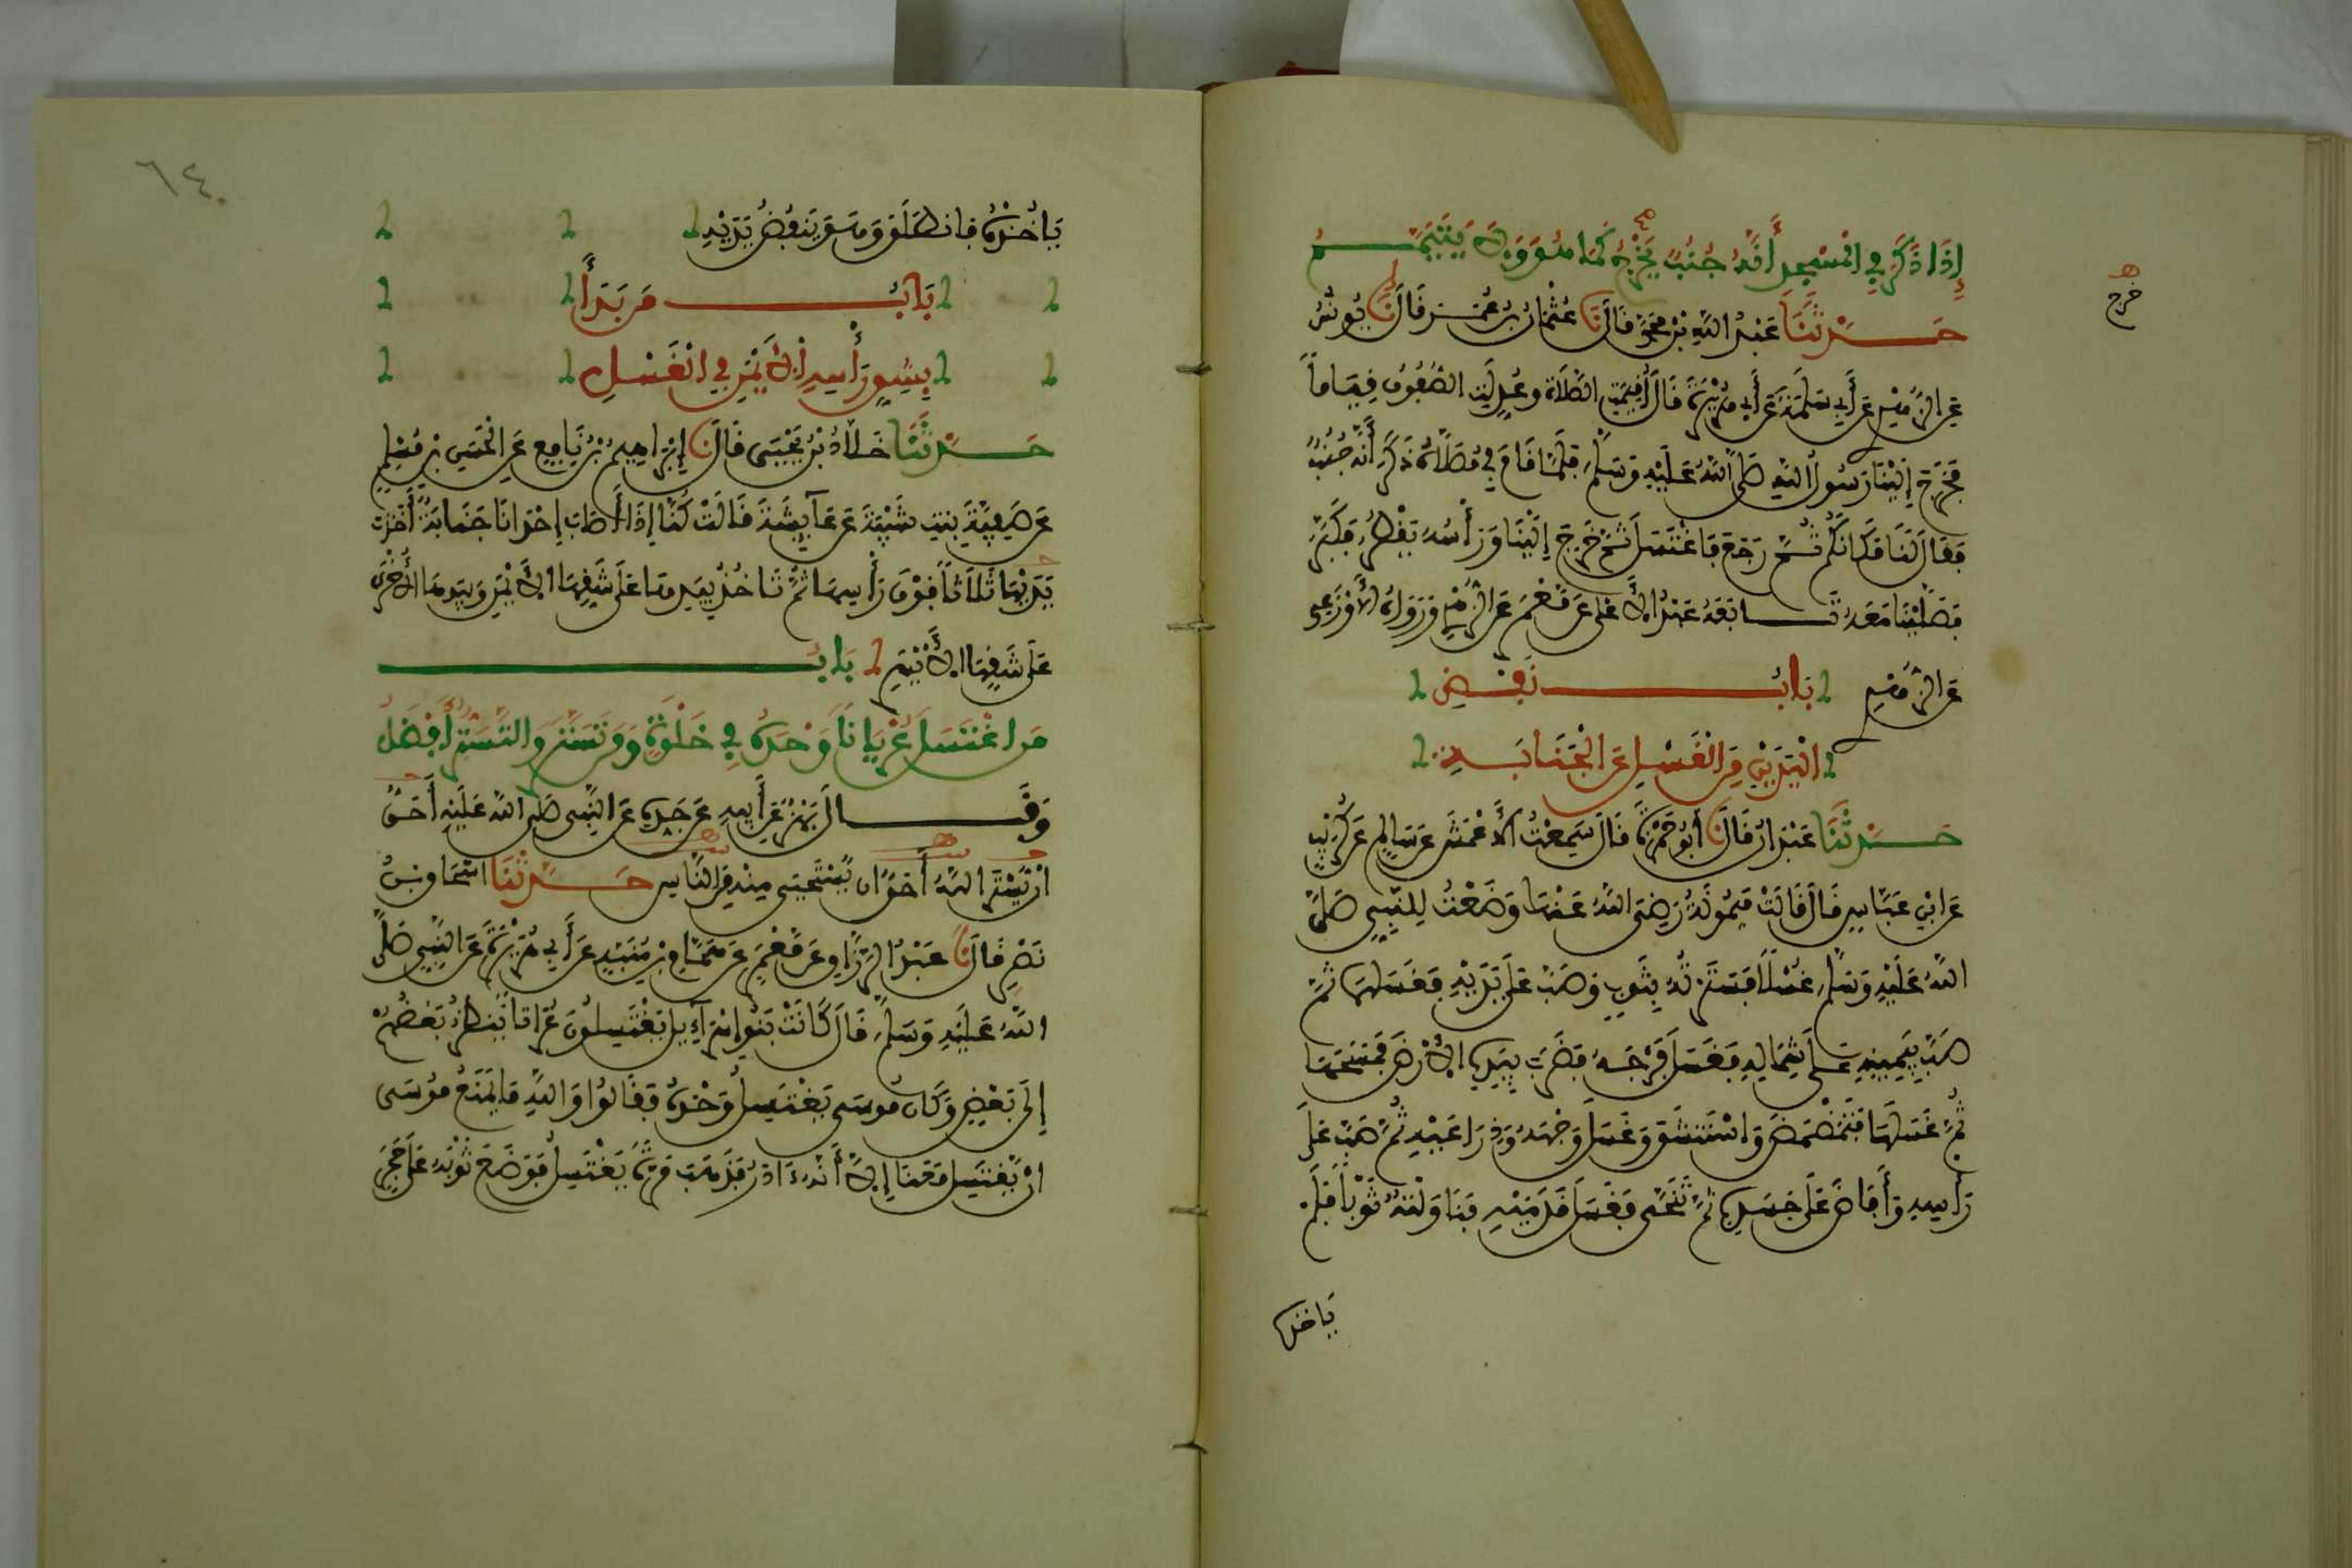 إِذَا ذَكَرَ فِي الْمَسْجِدِ أَنَّهُ جُنُبٌ يَخْرُجُ كَمَا هُوَ وَلَا يَتَيَمَّمُ
خرج
حَدَّثَنَا عَبْدُ اللهِ بْنُ مُحَمَّدٍ قَالَ نَا عُثْمَانُ بْنُ عُمَرَ قَالَ نَا يُونُسُ
عَنِ الزُّهْرِيِّ عَنْ أَبِي سَلَمَةَ عَنْ أَبِي هُرَيْرَةَ قَالَ أُقِيمَتِ الصَّلَاةُ وَعُدِّلَتِ الصُّفُوفُ قِيَاماً
فَخَرَجَ إِلَيْنَا رَسُولُ اللهِ صَلَّى اللهُ عَلَيْهِ وَسَلَّمَ فَلَمَّا قَامَ فِي مُصَلَّاهُ ذَكَرَ أَنَّهُ جُنُبٌ
فَقَالَ لَنَا مَكَانَكُمْ ثُمَّ رَجَعَ فَاغْتَسَلَ ثُمَّ خَرَجَ إِلَيْنَا وَرَأْسُهُ يَقْطُرُ فَكَبَّرَ
فَصَلَّيْنَا مَعَهُ تَابَعَهُ عَبْدُ الْأَعْلَى عَنْ مَعْمَرٍ عَنِ الزُّهْرِيِّ وَرَوَاهُ الْأَوْزَعِي
عَنِ الزُّهْرِيِّ بَابُ نَفْضِ
الْيَدَيْنِ مِنَ الْغَسْلِ عَنِ الْجَنَابَةِ
حَدَّثَنَا عَبْدَانُ قَالَ نَا أَبُو حَمْزَةَ قَالَ سَمِعْتُ الْأَعْمَشَ عَنْ سَالِمٍ عَنْ كُرَيْبٍ
عَنِ ابْنِ عَبَّاسٍ قَالَ قَالَتْ مَيْمُونَةُ رَضِيَ اللهُ عَنْهَا وَضَعْتُ لِلنَّبِيِّ صَلَّى
اللهُ عَلَيْهِ وَسَلَّمَ غُسْلًا فَسَتَرْتُهُ بِثَوْبٍ وَصَبَّ عَلَى يَدَيْهِ فَغَسَلَهُمَا ثُمَّ
صَبَّ بِيَمِينِهِ عَلَى شِمَالِهِ فَغَسَلَ فَرْجَهُ فَضَرَبَ بِيَدِهِ الْأَرْضَ فَمَسَحَهَا
ثُمَّ غَسَلَهَا فَتَمَضْمَضَ وَاسْتَنْشَقَ وَغَسَلَ وَجْهَهُ وَذِرَاعَيْهِ ثُمَّ صَبَّ عَلَى
رَأْسِهِ وَأَفَاضَ عَلَى جَسَدِهِ ثُمَّ تَنَحَّى فَغَسَلَ قَدَمَيْهِ فَنَاوَلْتُهُ ثَوْباً فَلَمْ
يَاخذه
٦٤
يَاخُذْهُ فَانْطَلَقَ وَهُوَ يَنْفُضُ يَدَيْهِ
بَابُ مَنْ بَدَأَ
بِشِقِّ رَأْسِهِ الْأَيْمَنِ فِي الْغَسْلِ
حَدَّثَنَا خَلَّادُ بْنُ يَحْيَى قَالَ نَا إِبْرَاهِيمُ بْنُ نَافِعٍ عَنِ الْحَسَنِ بْنِ مُسْلِمٍ
عَنْ صَفِيَّةَ بِنْتِ شَيْبَةَ عَنْ عَائِشَةَ قَالَتْ كُنَّا إِذَا أَصَابَ إِحْدَانَا جَنَابَةٌ أَخَذَتْ
بِيَدَيْهَا ثَلَاثاً فَوْقَ رَأْسِهَا ثُمَّ تَاخُذُ بِيَدِهَا عَلَى شِقِّهَا الْأَيْمَنِ وَبِيَدِهَا الْأُخْرَى
عَلَى شِقِّهَا الْأَيْسَرِ بَابُ
مَنِ اغْتَسَلَ عُرْيَاناً وَحْدَهُ فِي خَلْوَةٍ وَمَنْ تَسَتَّرَ وَالتَّسَتُّرُ أَفْضَلُ
وَقَالَ بَهْزٌ عَنْ أَبِيهِ عَنْ جَدِّهِ عَنِ النَّبِي صَلَّى اللهُ عَلَيْهِ أَحَقُّ
انْ يُسْتَرَ اللهُ أَحَقُّ ان يُسْتَحْيَى مِنْهُ مِنَ النَّاسِ حَدَّثَنَا اسْحَاق بْنُ
نَصْرٍ قَالَ نَا عَبْدُ الرَّزَّاقِ عَنْ مَعْمَرٍ عَنْ هَمَّامِ بْنِ مُنَبِّهٍ عَنْ أَبِي هُرَيْرَةَ عَنِ النَّبِيِّ صَلَّى
اللهُ عَلَيْهِ وَسَلَّمَ قَالَ كَانَتْ بَنُو إِسْرَاءِيلَ يَغْتَسِلُونَ عُرَاةً يَنْظُرُ بَعْضُهُمْ
إِلَى بَعْضٍ وَكَانَ مُوسَى يَغْتَسِلُ وَحْدَهُ فَقَالُوا وَاللهِ مَا يَمْنَعُ مُوسَى
انْ يَغْتَسِلَ مَعَنَا إِلَّا أَنَّهُ ءَادَرُ فَذَهَبَ مَرَّةً يَغْتَسِلُ فَوَضَعَ ثَوْبَهُ عَلَى حَجَرٍ